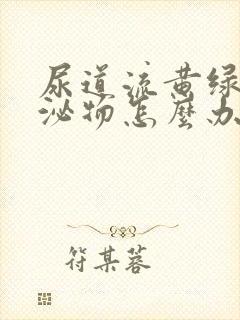 尿道流黄绿
泌物怎麼办
符某蓉